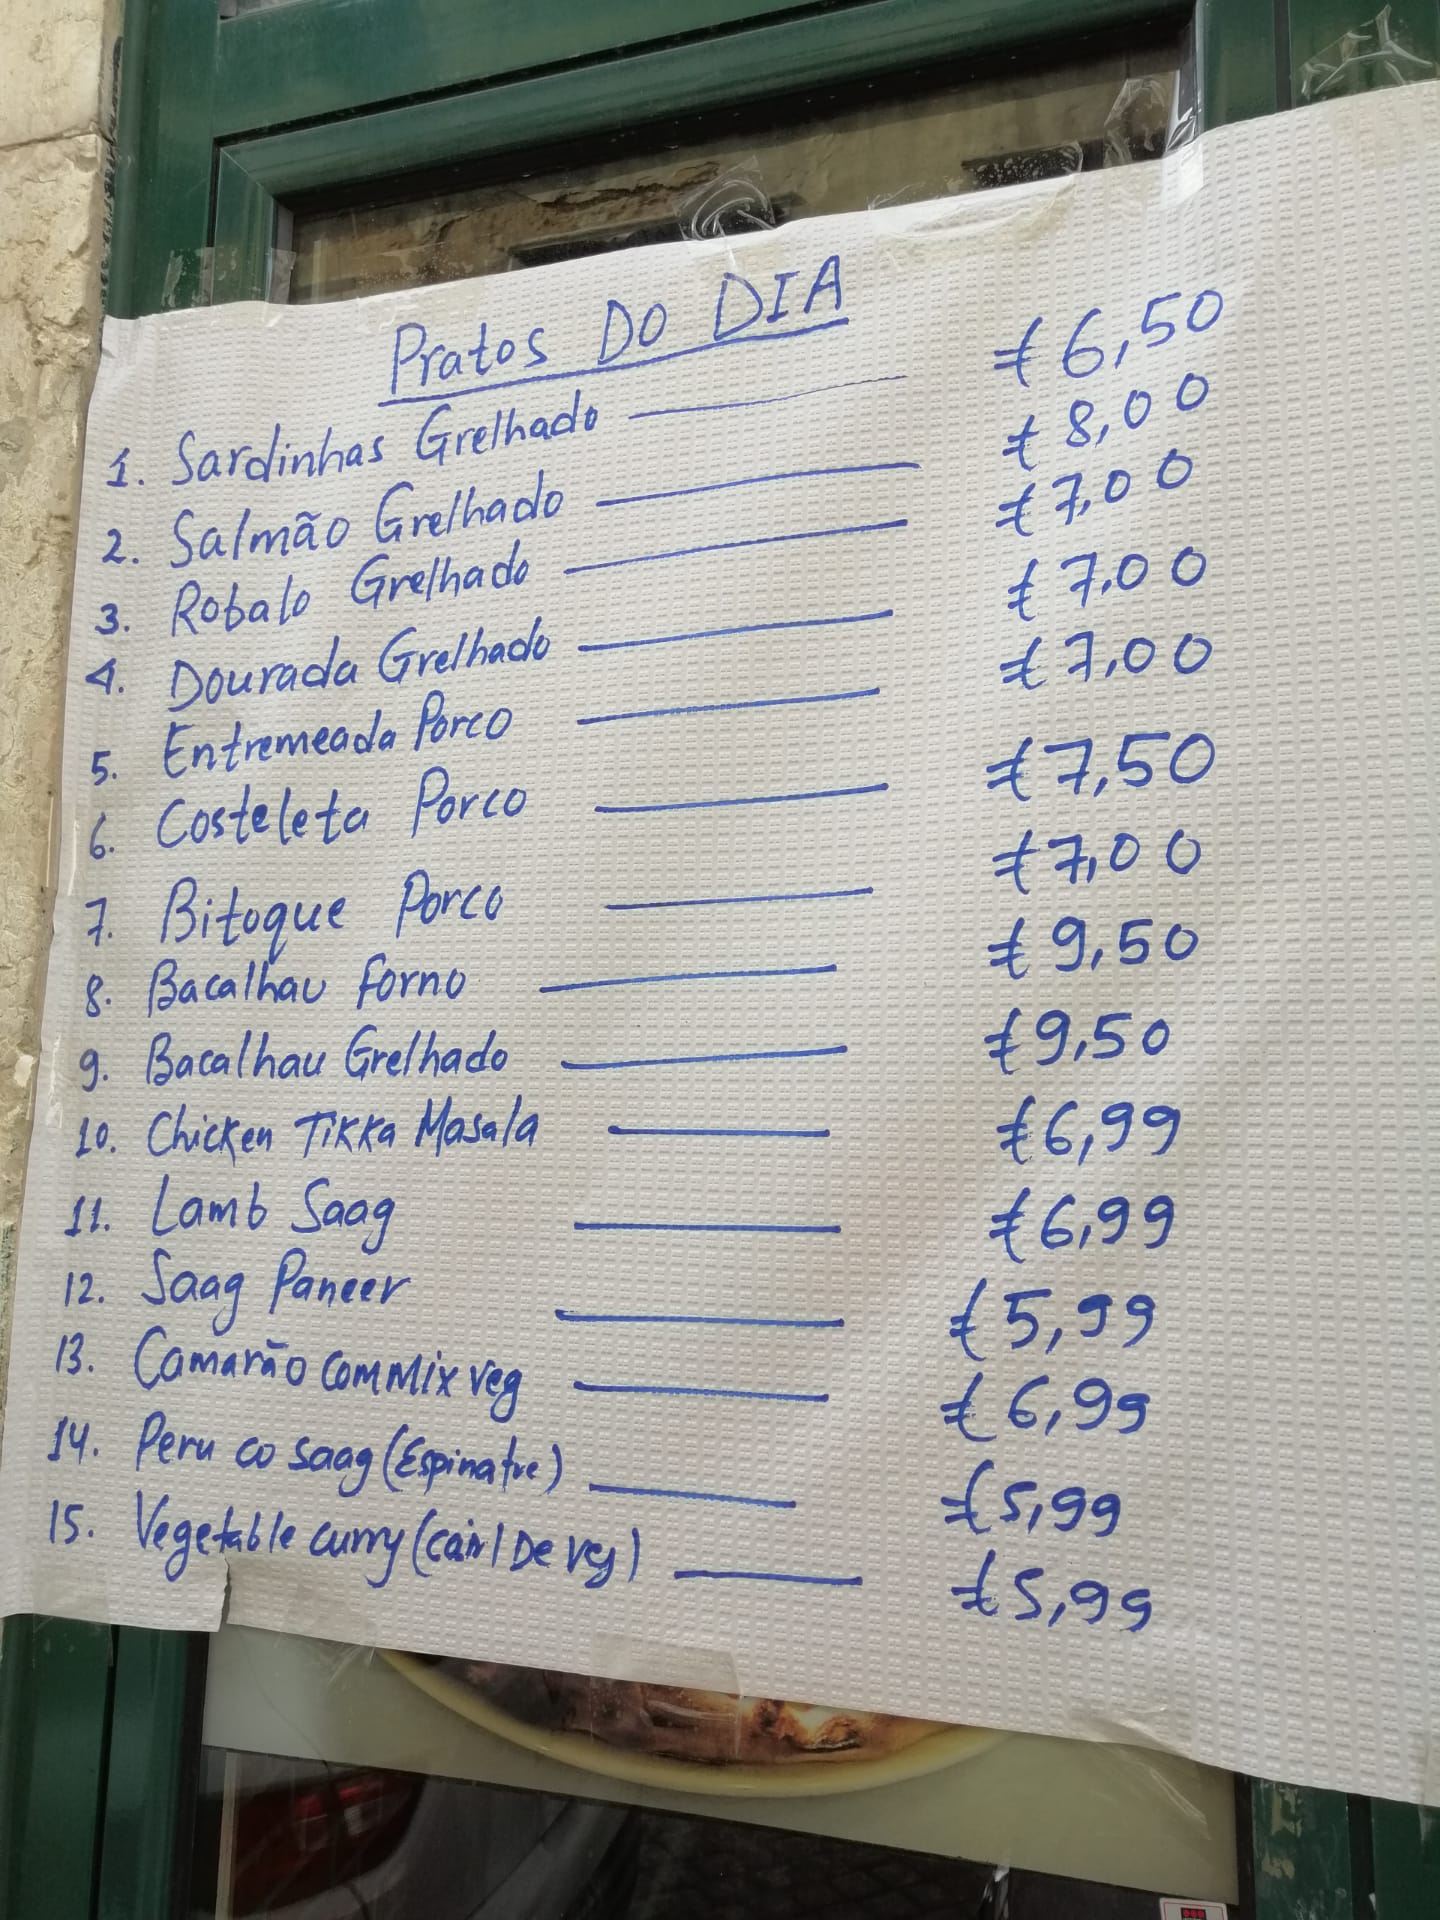 Pratos DO DIA
1. Sardinhas Grelhado €6,50
2. Salmão Grelhado €8,00
3. Robalo Grelhado €7,00
4. Dourada Grelhado €7,00
5. Entremeada Porco €7,00
6. Costeleta Porco €7,50
7. Bitoque Porco €7,00
8. Bacalhau forno €9,50
9. Bacalhau Grelhado €9,50
10. Chicken Tikka Masala €6,99
11. Lamb Saag €6,99
12. Saag Paneer €5,99
13. Camarão com Mix veg €6,99
14. Peru co saag (Espinafre) €5,99
15. Vegetable curry (Cairl De veg) €5,99